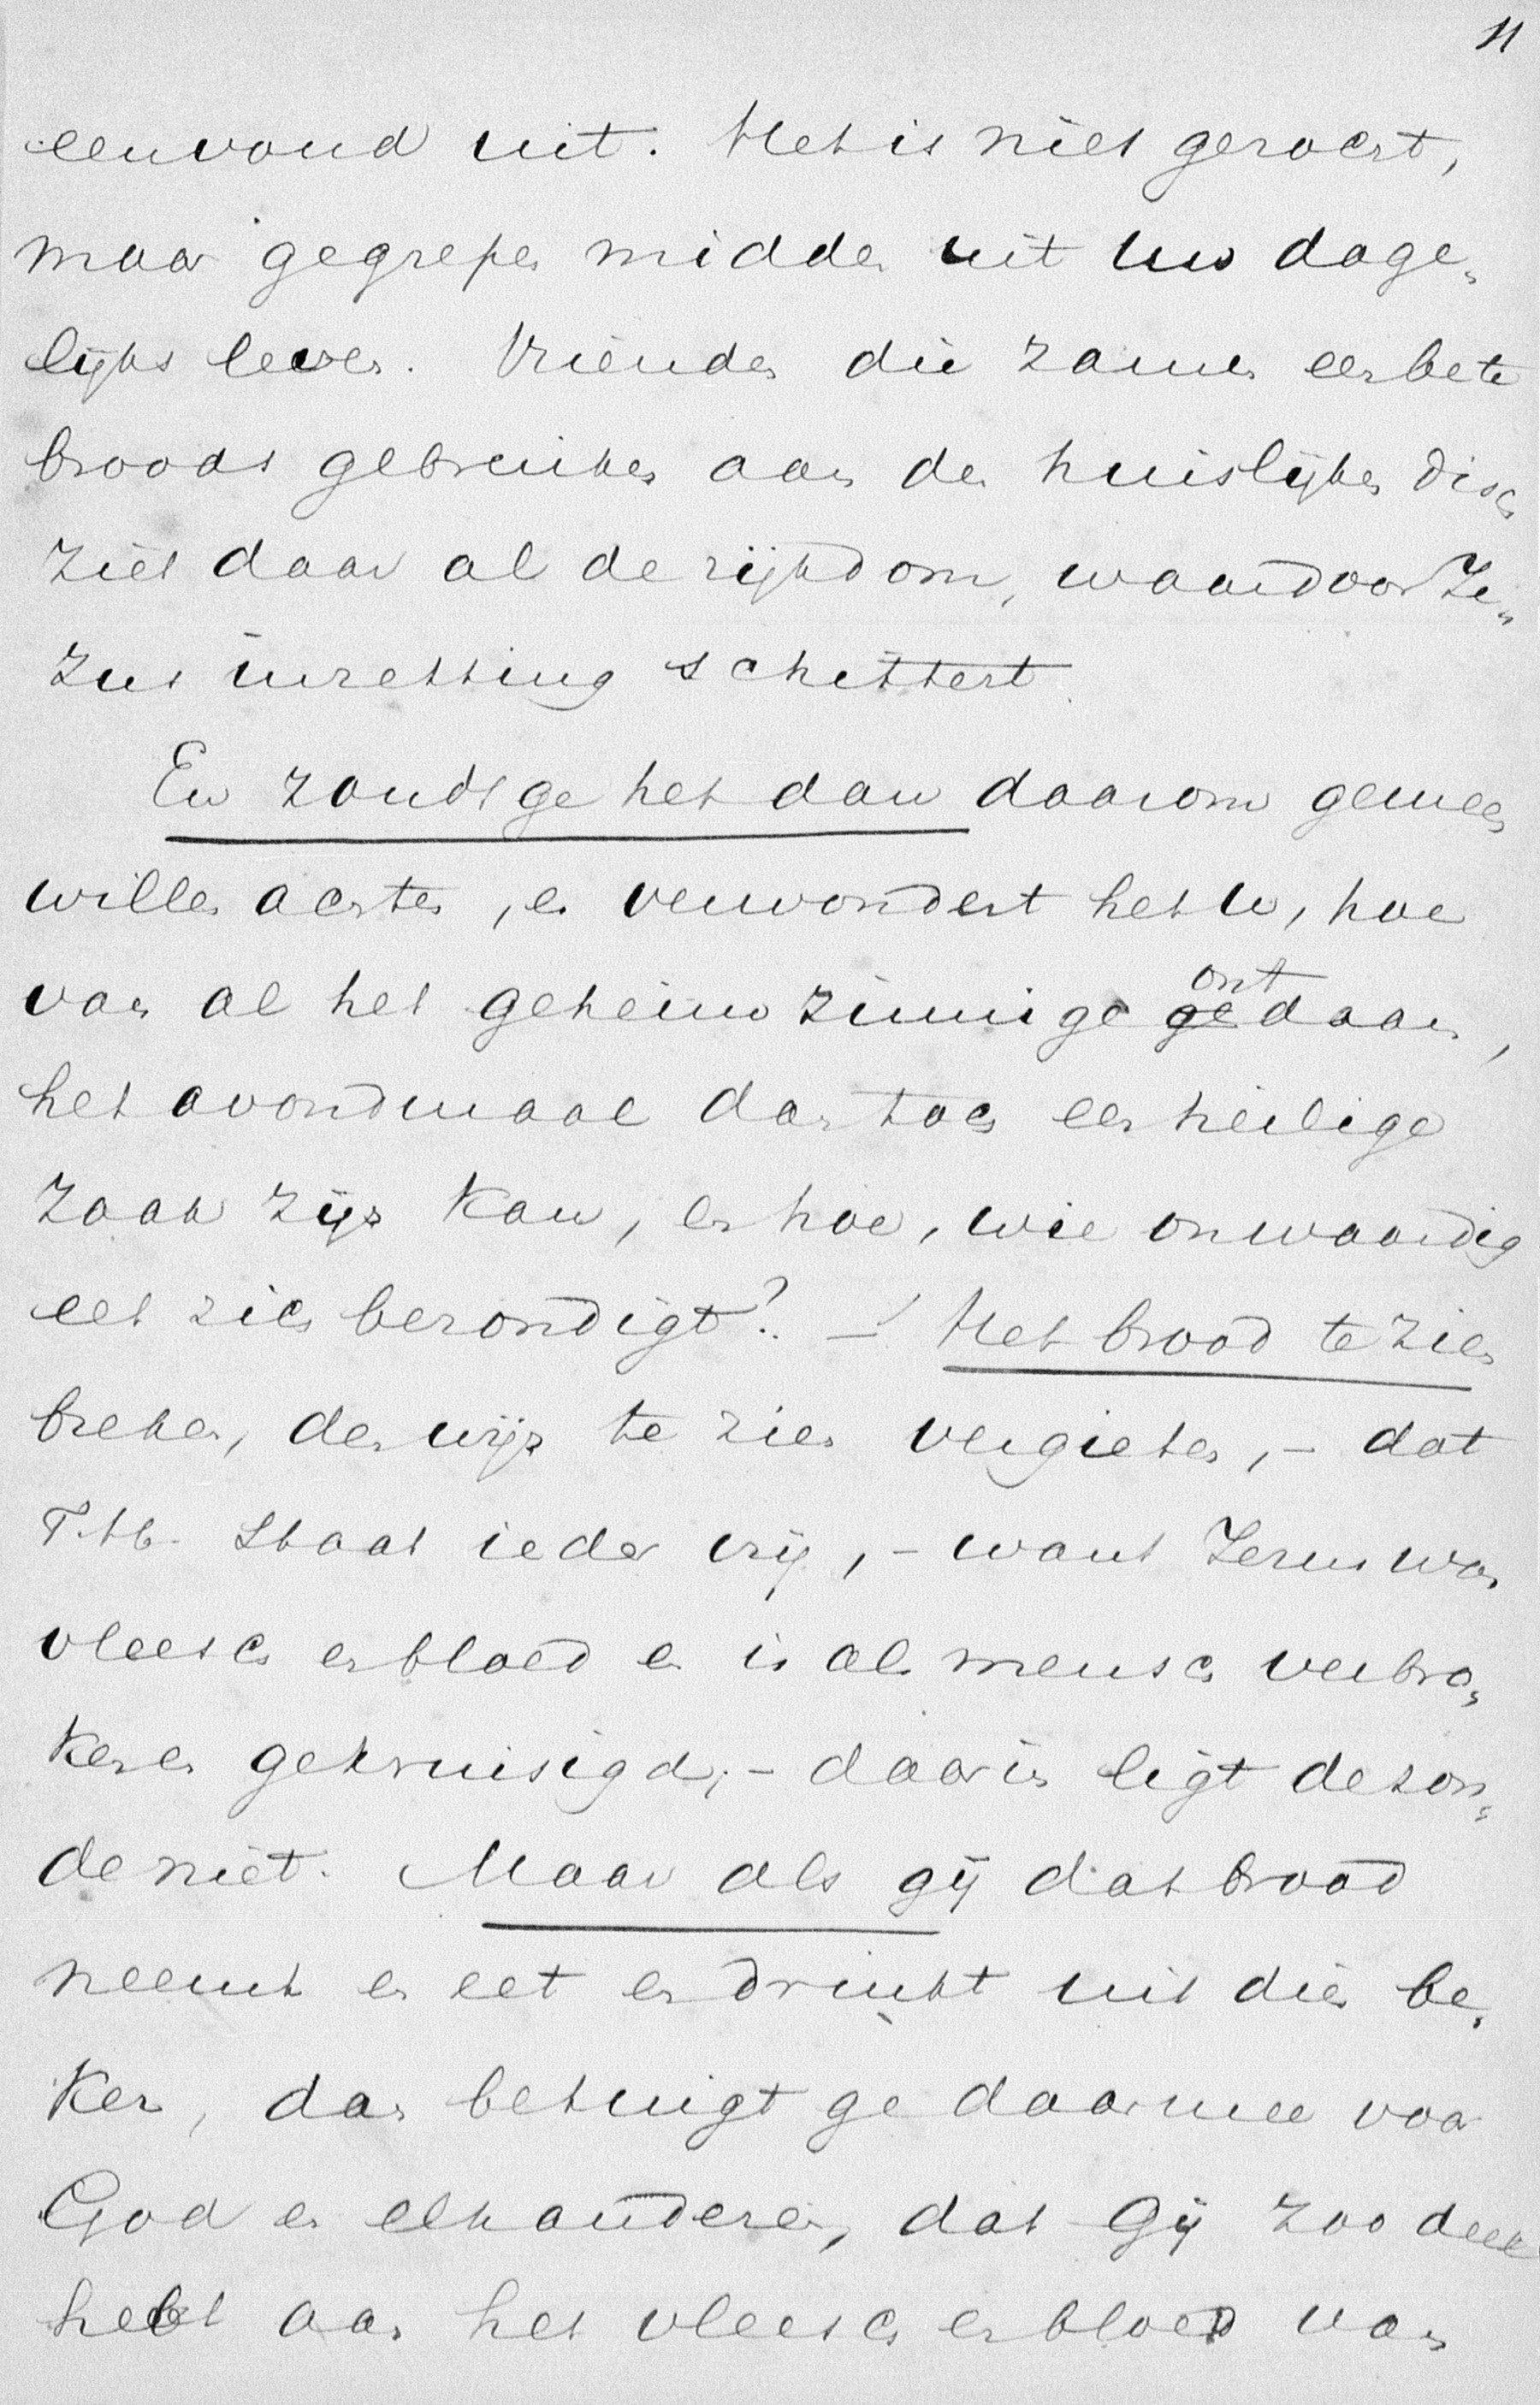 11
eenvoud uit. Het is niet gezocht,
maar gegrepen midden uit uw dage„
lijks leven. Vrienden die zamen een bete
broods gebruiken aan den huislijken disch
ziet daar al de rijkdom, waardoor Je„
zus inzetting schittert.
En zoudt ge het dan daarom gemeen
willen achten, en verwondert het U, hoe
van al het geheimzinnige ge ont daan,
het avondmaal dan toch een heilige
zaak zijn kan, en hoe, wie onwaardig
eet zich bezondigt? – Het brood te zien
breken, den wijn te zien vergieten, – dat
T. H. staat ieder vrij, – want Jezus was
vleesch en bloed en is als mensch verbro„
ken en gekruisigd; – daarin ligt de zon„
de niet. Maar als gij dat brood
neemt en eet en drinkt uit dien be„
ker, dan betuigt ge daarmee voor
God en elkanderen, dat Gij zoo deel
hebt aan het vleesch en bloed van